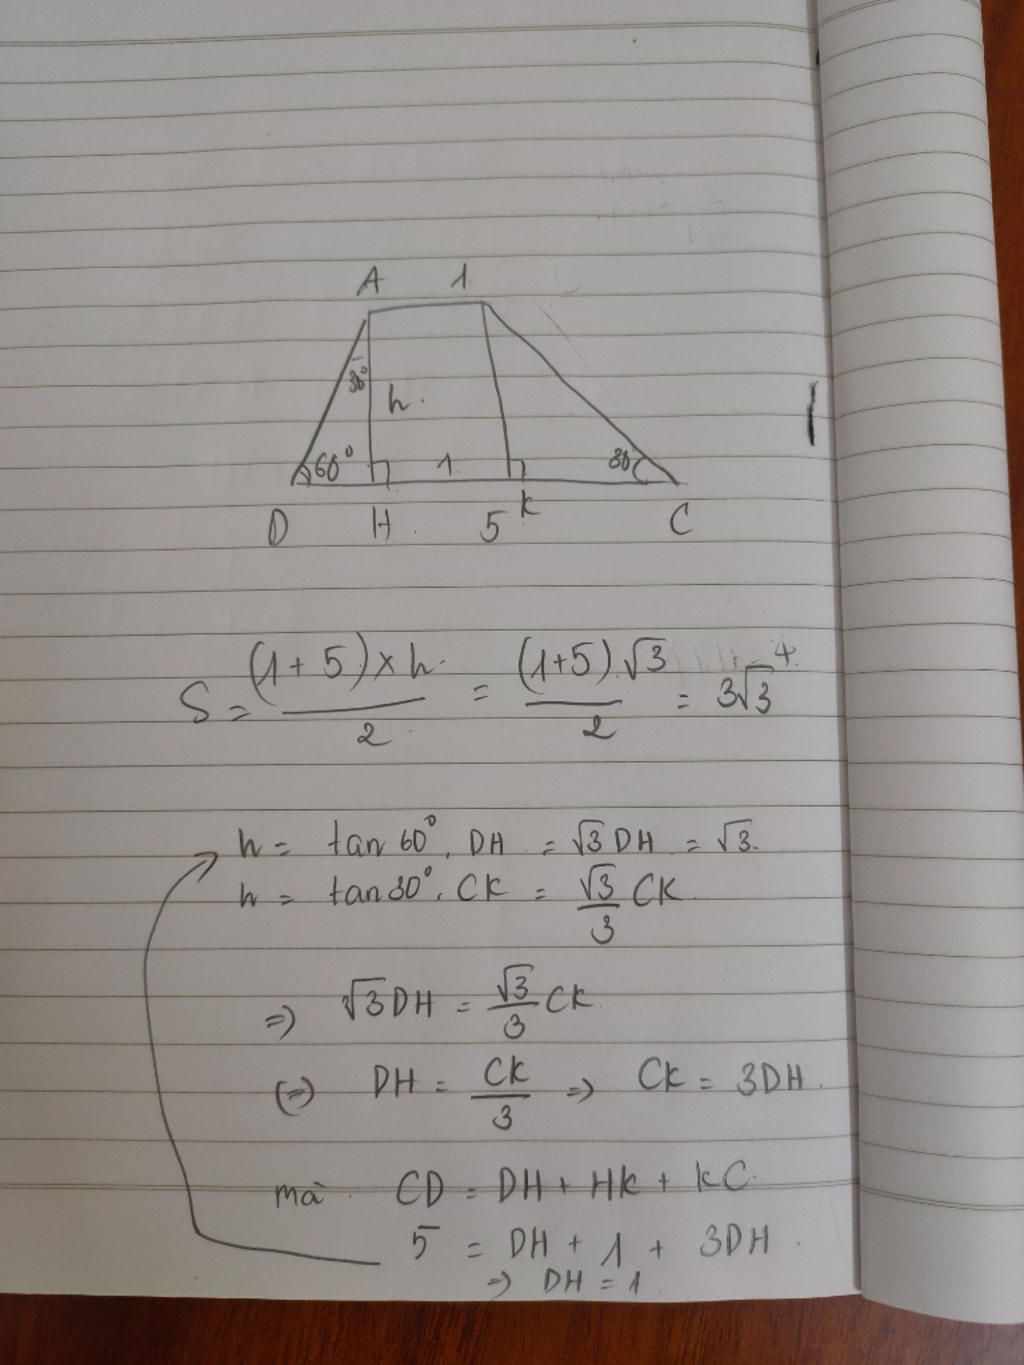 A 1
30°
h.
60° 1. 30
D H 5 K C
S = (1+5)×h / 2 = (1+5).√3 / 2 = 3√3
h = tan 60°. DH = √3 DH = √3.
h = tan 30°. CK = √3/3 CK
=> √3 DH = √3/3 CK
(=>) DH = CK/3 => CK = 3DH.
mà CD = DH + HK + KC.
5 = DH + 1 + 3DH.
=> DH = 1